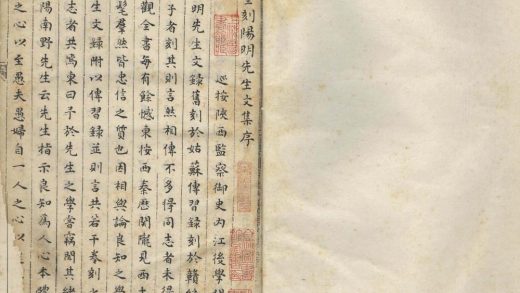 刻陽明先生文集序
巡按陝西監察御史內江後學
明先生文錄舊刻於姑蘇傳習錄刻於贛
子者刻其則言然相傳不多得同志者未得
觀全書每有餘憾東按西秦歷關隴見西土
髦群然皆忠信之質也因相與論良知之學
生文錄附以傳習錄並則言共若干卷刻
志者共焉東曰予於先生之學嘗竊聞其緒
陽南野先生云先生指示良知為人心本
之心以至愚夫愚婦自一人之心以